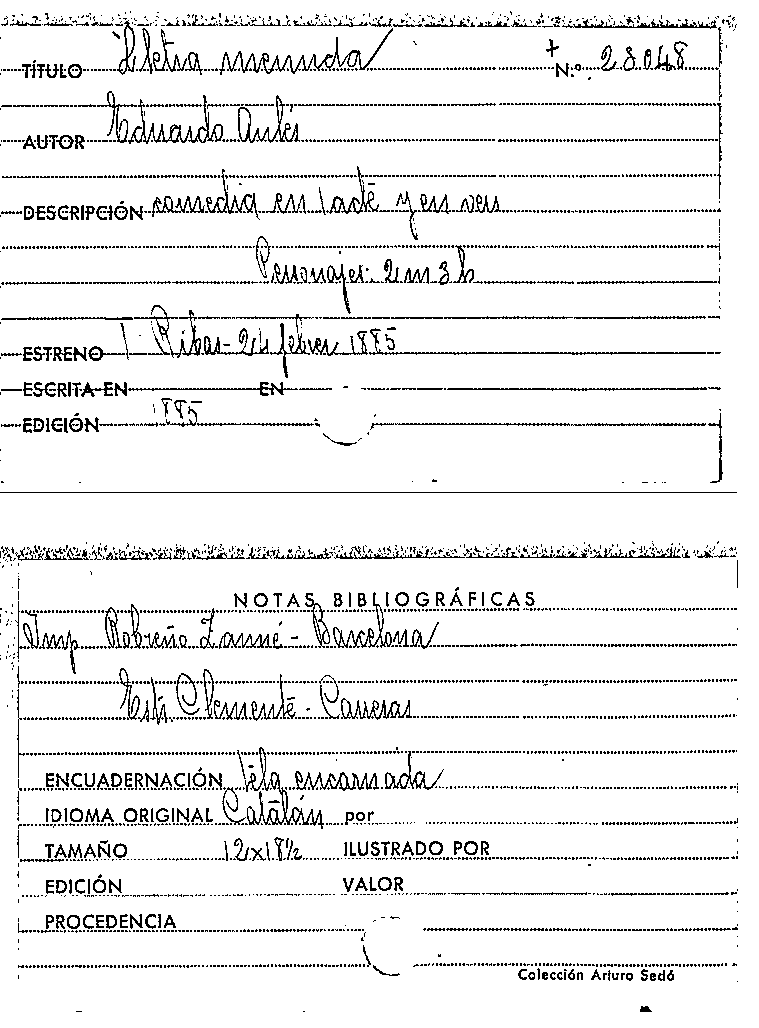 TÍTULO Lletra menuda + N.º 28048
AUTOR Eduardo Aulés
DESCRIPCIÓN comedia en 1 acte y en vers
Personajes: 2 m 3 h
ESTRENO T. Ribas - 24 febrer 1885
ESCRITA EN EN
EDICIÓN 1885
NOTAS BIBLIOGRÁFICAS
Imp Robreño Zanné - Barcelona
Clemente - Caneras
ENCUADERNACIÓN tela encarnada
IDIOMA ORIGINAL Catalán por
TAMAÑO 12x18½ ILUSTRADO POR
EDICIÓN VALOR
PROCEDENCIA
Colección Arturo Sedó